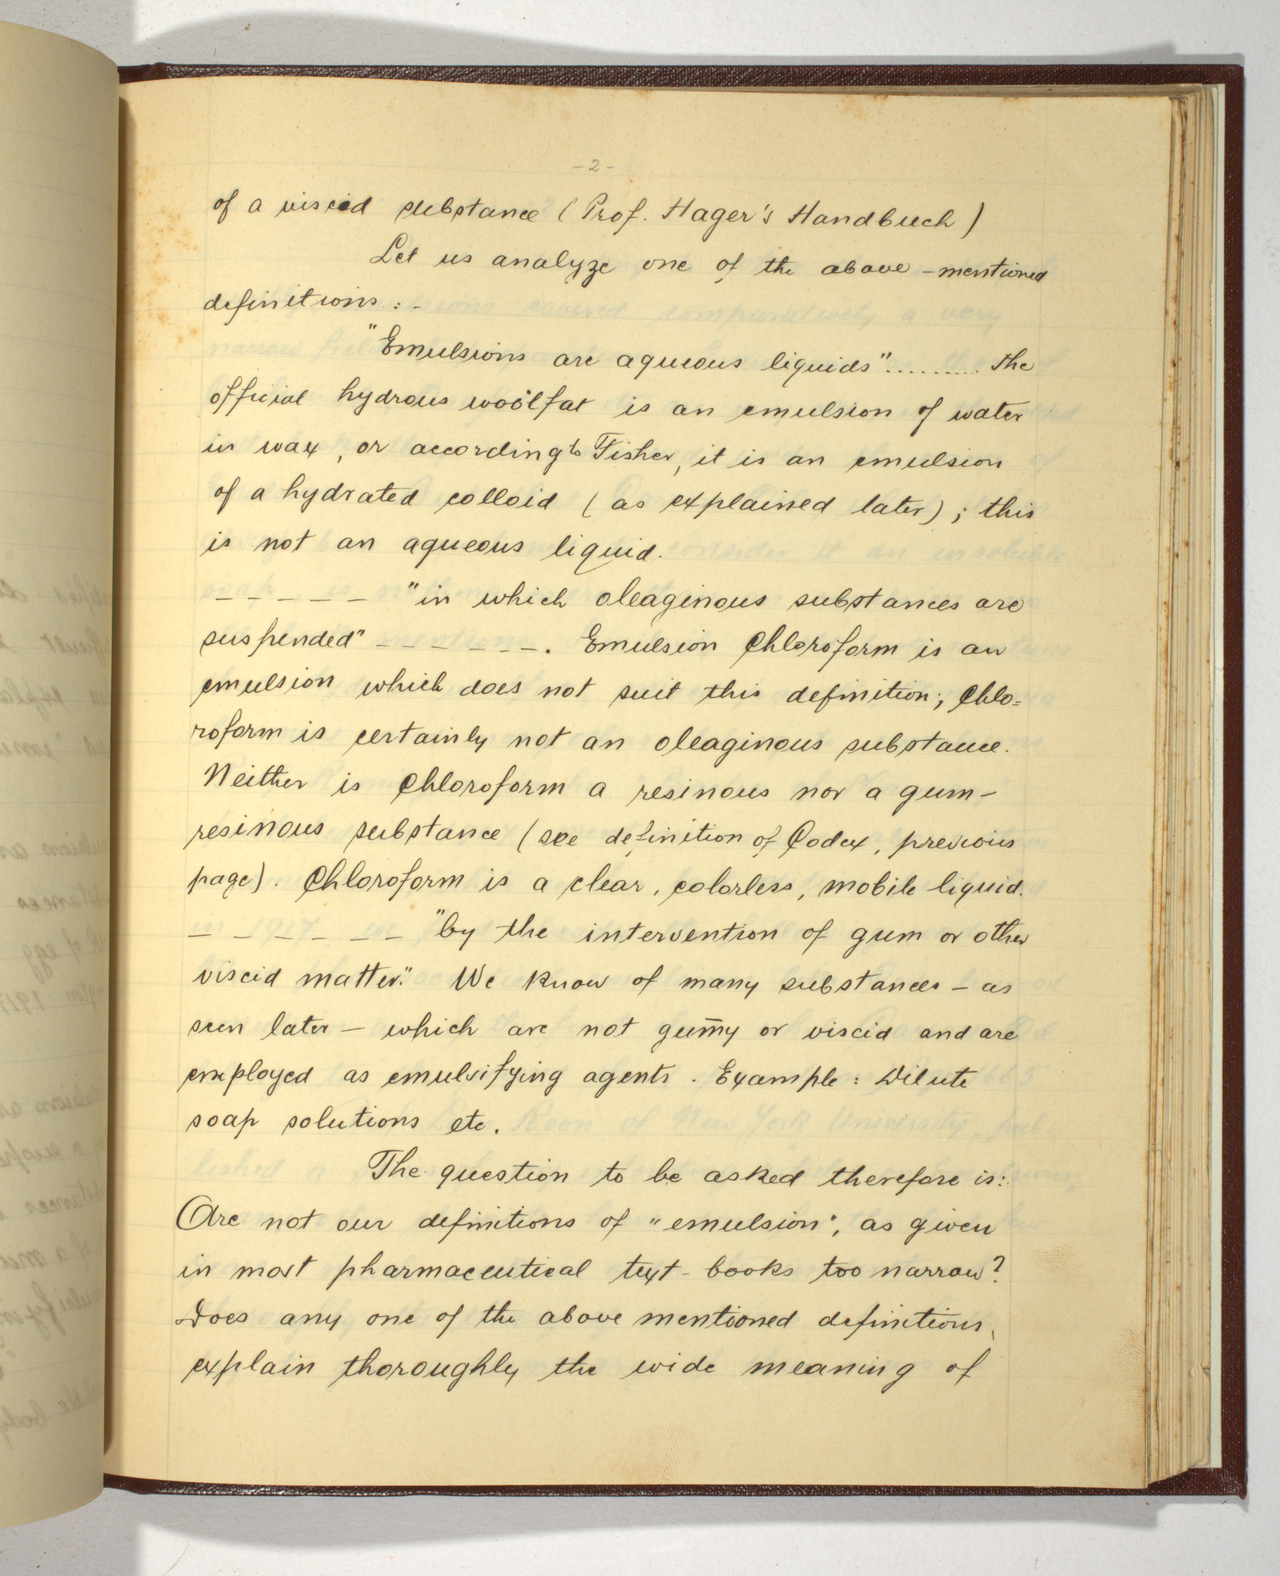 -2-
of a viscid substance (Prof. Hager's Handbuch)
Let us analyze one of the above-mentioned
definitions:-
"Emulsions are aqueous liquids".......... the
official hydrous woolfat is an emulsion of water
in wax, or according to Fisher, it is an emulsion
of a hydrated colloid (as explained later); this
is not an aqueous liquid.
_ _ _ _ _ "in which oleaginous substances are
suspended" _ _ _ _ _ _ _. Emulsion Chloroform is an
emulsion which does not suit this definition; Chlo=
roform is certainly not an oleaginous substance.
Neither is Chloroform a resinous nor a gum-
resinous substance (see definition of Codex, previous
page). Chloroform is a clear, colorless, mobile liquid.
_ _ _ _ _ _ _ "by the intervention of gum or other
viscid matter." We know of many substances - as
seen later - which are not gum̅y or viscid and are
employed as emulsifying agents. Example: Dilute
soap solutions etc.
The question to be asked therefore is:
Are not our definitions of "emulsion", as given
in most pharmaceutical text-books too narrow?
Does any one of the above mentioned definitions,
explain thoroughly the wide meaning of